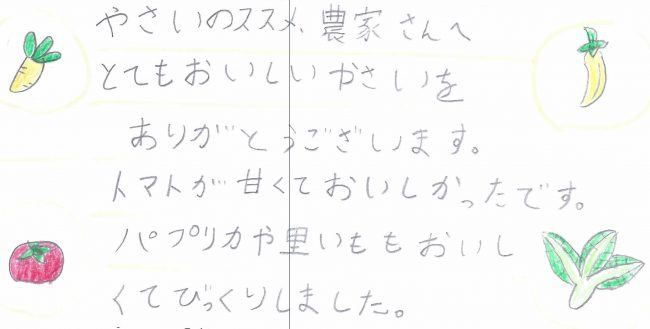 やさいのススメ、農家さんへ
とてもおいしいやさいを
ありがとうございます。
トマトが甘くておいしかったです。
パプリカや里いももおいし
くてびっくりしました。